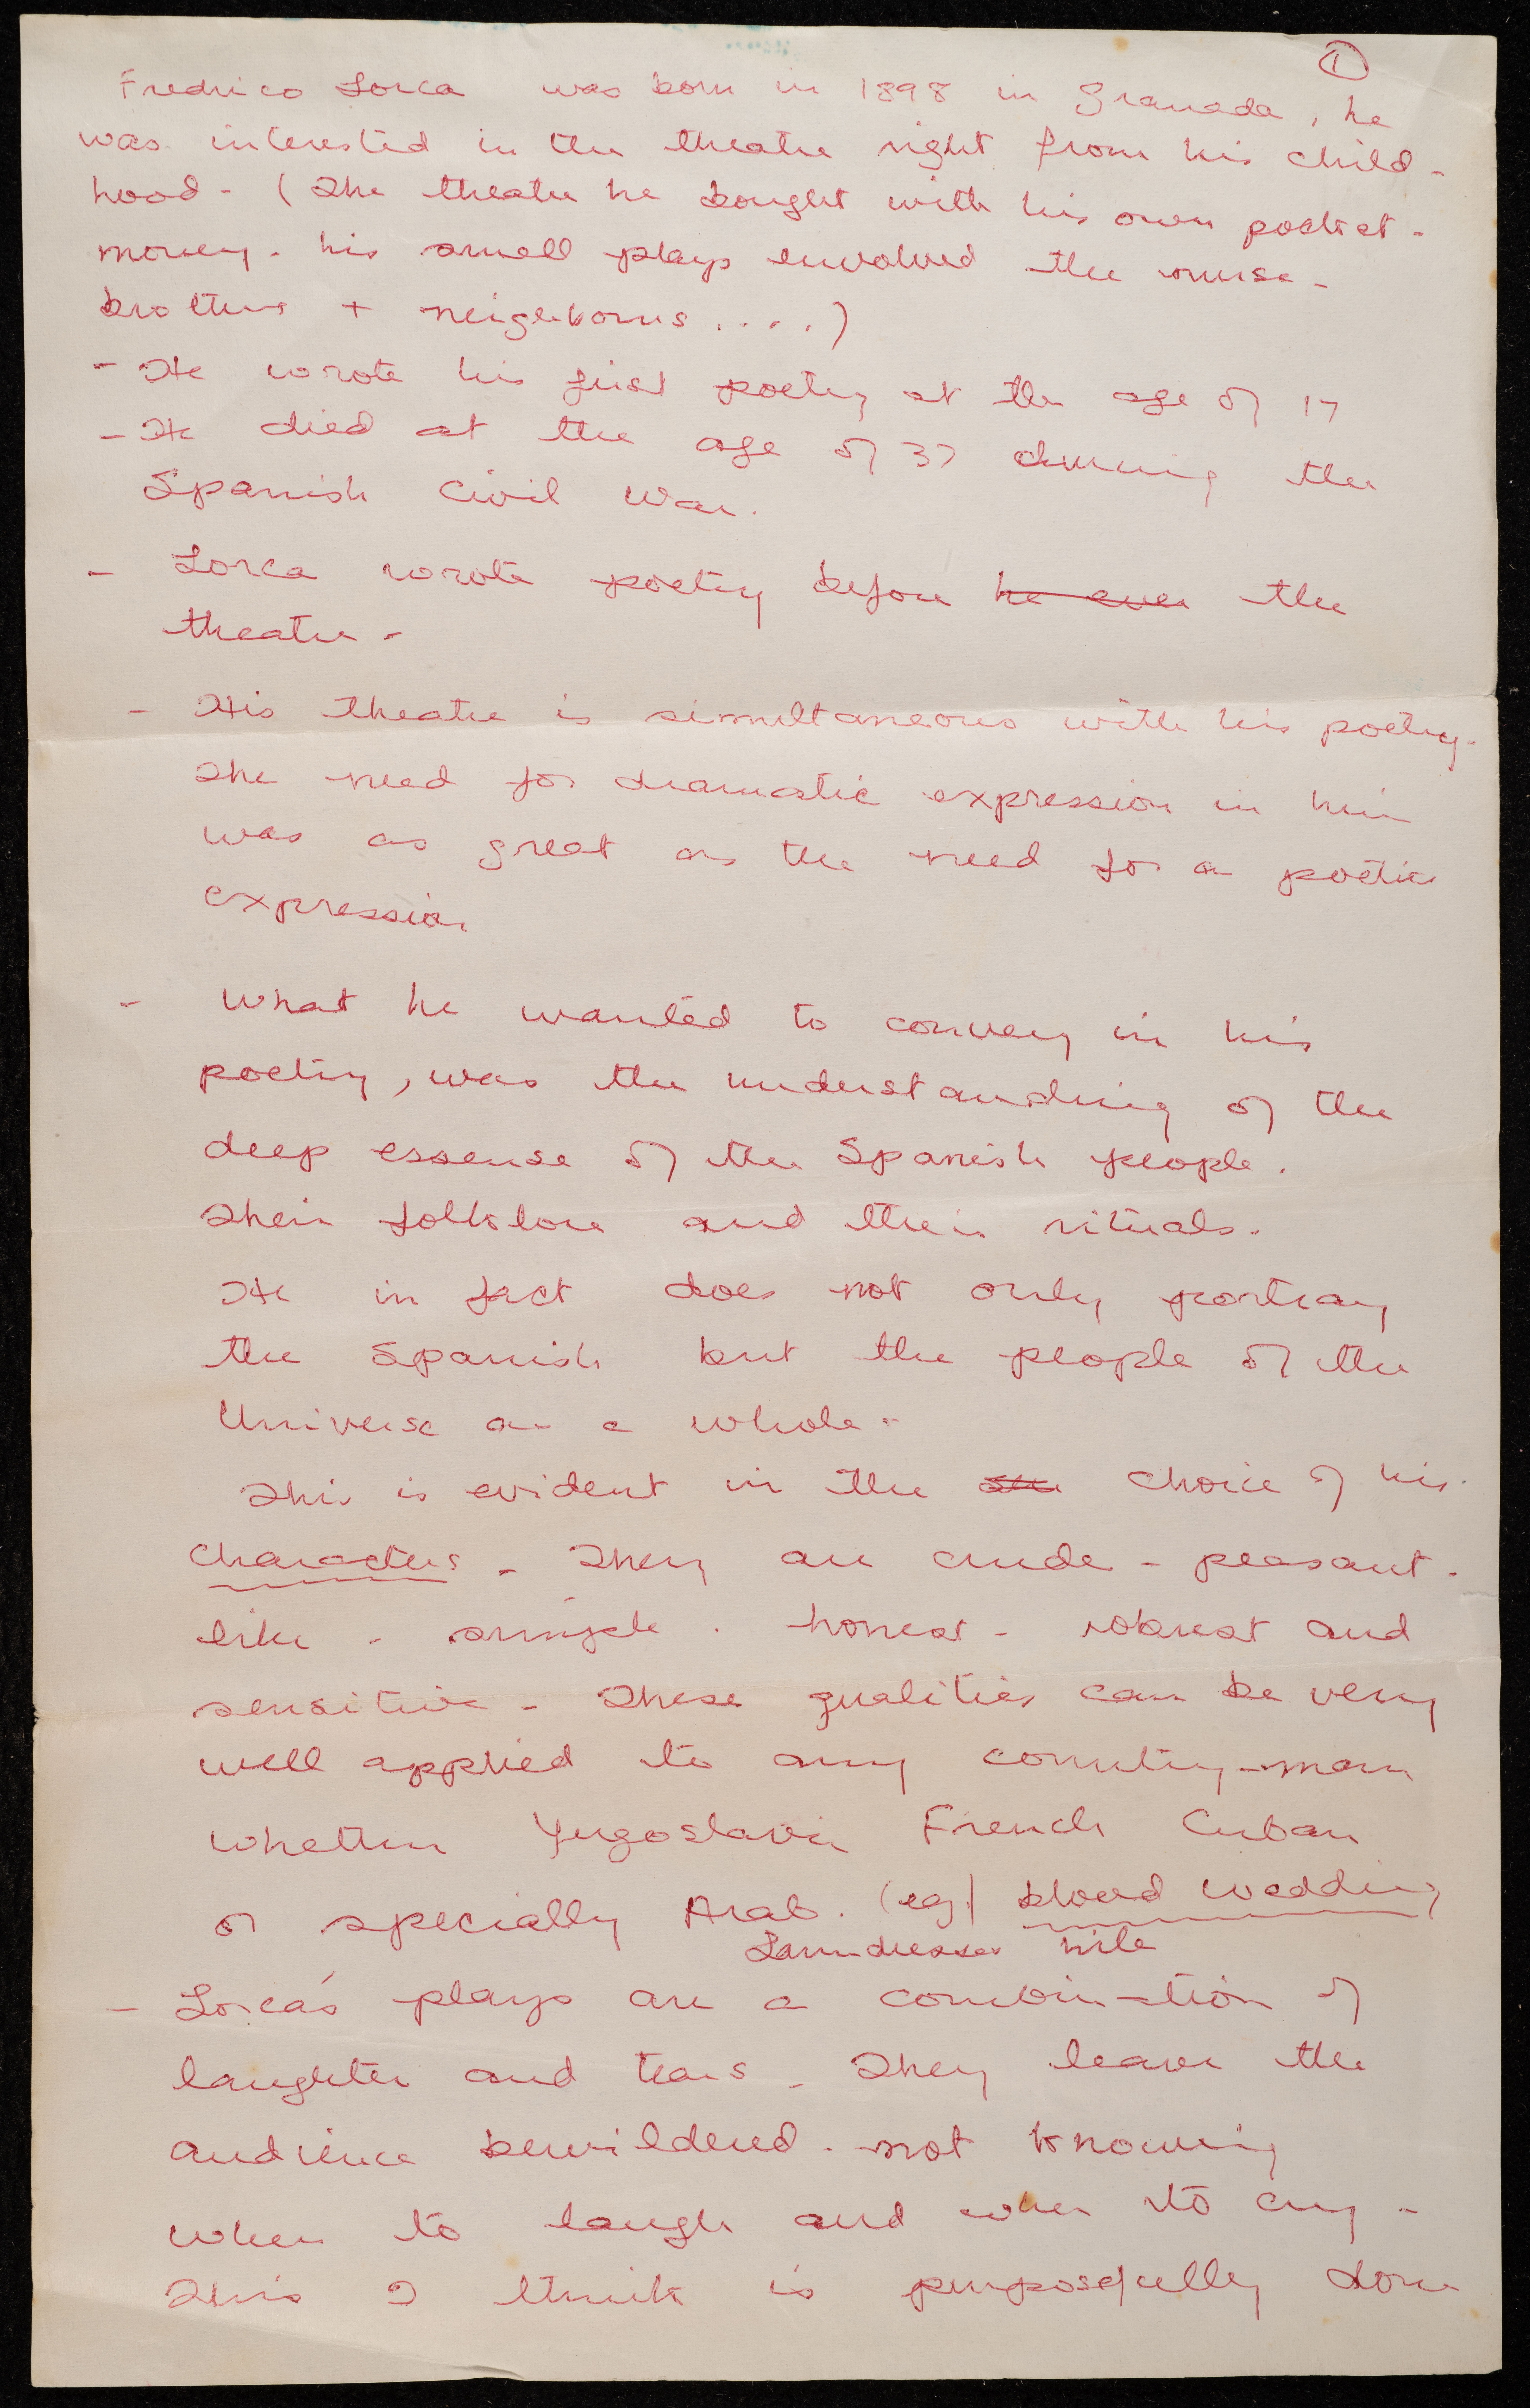 ①
Fredrico Lorca was born in 1898 in Granada, he
was interested in the theatre right from his child-
hood - (The theatre he bought with his own pocket-
money - his small plays envolved the nurse -
brothers + neighbours ....)
- He wrote his first poetry at the age of 17
- He died at the age of 37 during the
Spanish Civil War.
- Lorca wrote poetry before he ever the
theatre -
- His theatre is simultaneous with his poetry.
The need for dramatic expression in him
was as great as the need for a poetic
expression
- What he wanted to convey in his
poetry, was the understanding of the
deep essense of the Spanish people.
Their folklore and their rituals.
He in fact does not only portray
the Spanish but the people of the
Universe as a whole -
This is evident in the choice of his
characters - They are crude - peasant -
like - simple - honest - robust and
sensitive - These qualities can be very
well applied to any country-man
whether Yugoslavia French Cuban
or specially Arab. (eg) blood wedding
Laundresses nile
- Lorca's plays are a combination of
laughter and tears - They leave the
audience bewildered - not knowing
when to laugh and when to cry -
This I think is purposefully done